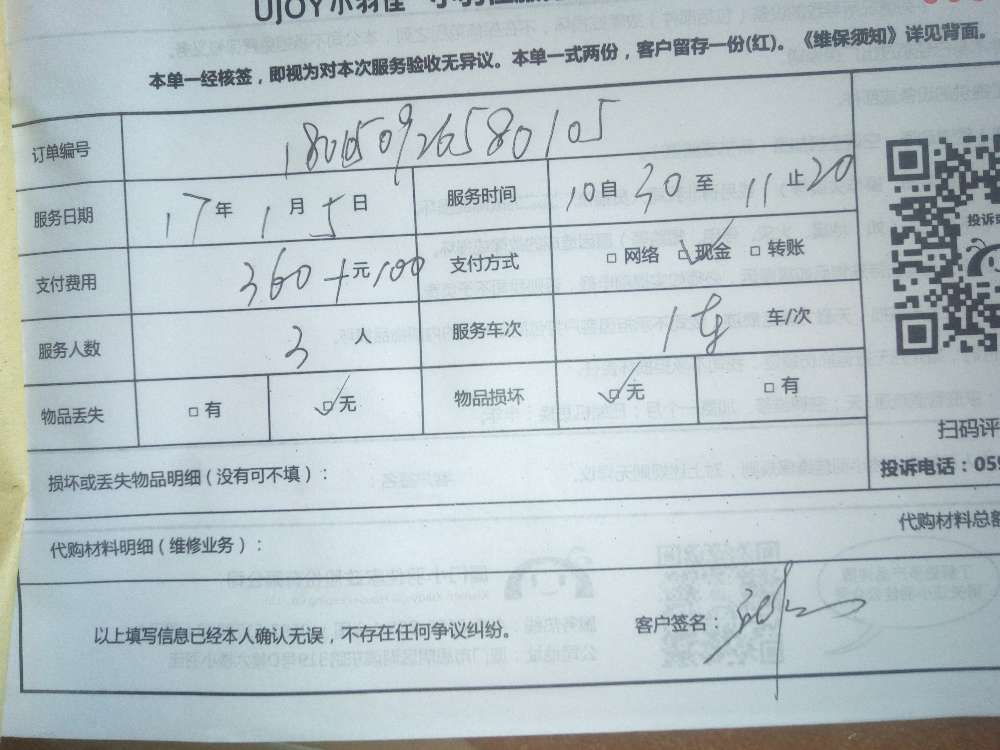 UJOY小羽佳
本单一经核签，即视为对本次服务验收无异议。本单一式两份，客户留存一份(红)。《维保须知》详见背面。
订单编号 1801050926580105
服务日期 17年1月5日 服务时间 10自30至11止20
支付费用 360+元100 支付方式 □网络 ☑现金 □转账
服务人数 3人 服务车次 1 车/次
物品丢失 □有 ☑无 物品损坏 ☑无 □有
损坏或丢失物品明细（没有可不填）：
代购材料明细（维修业务）：
代购材料总额
以上填写信息已经本人确认无误，不存在任何争议纠纷。 客户签名：
投诉
扫码评
投诉电话：059